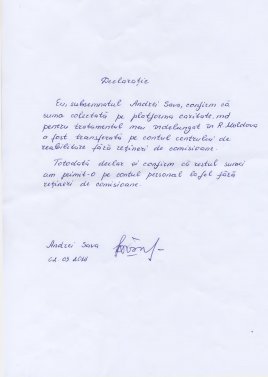 Declarație
Eu, subsemnatul Andrei Sava, confirm că
suma colectată pe platforma caritate.md
pentru tratamentul mai îndelungat în R. Moldova
a fost transferată pe contul centrului de
reabilitare fără rețineri de comisioane.
Totodată declar și confirm că restul sumei
am primit-o pe contul personal la fel fără
rețineri de comisioane.
Andrei Sava
02.09.